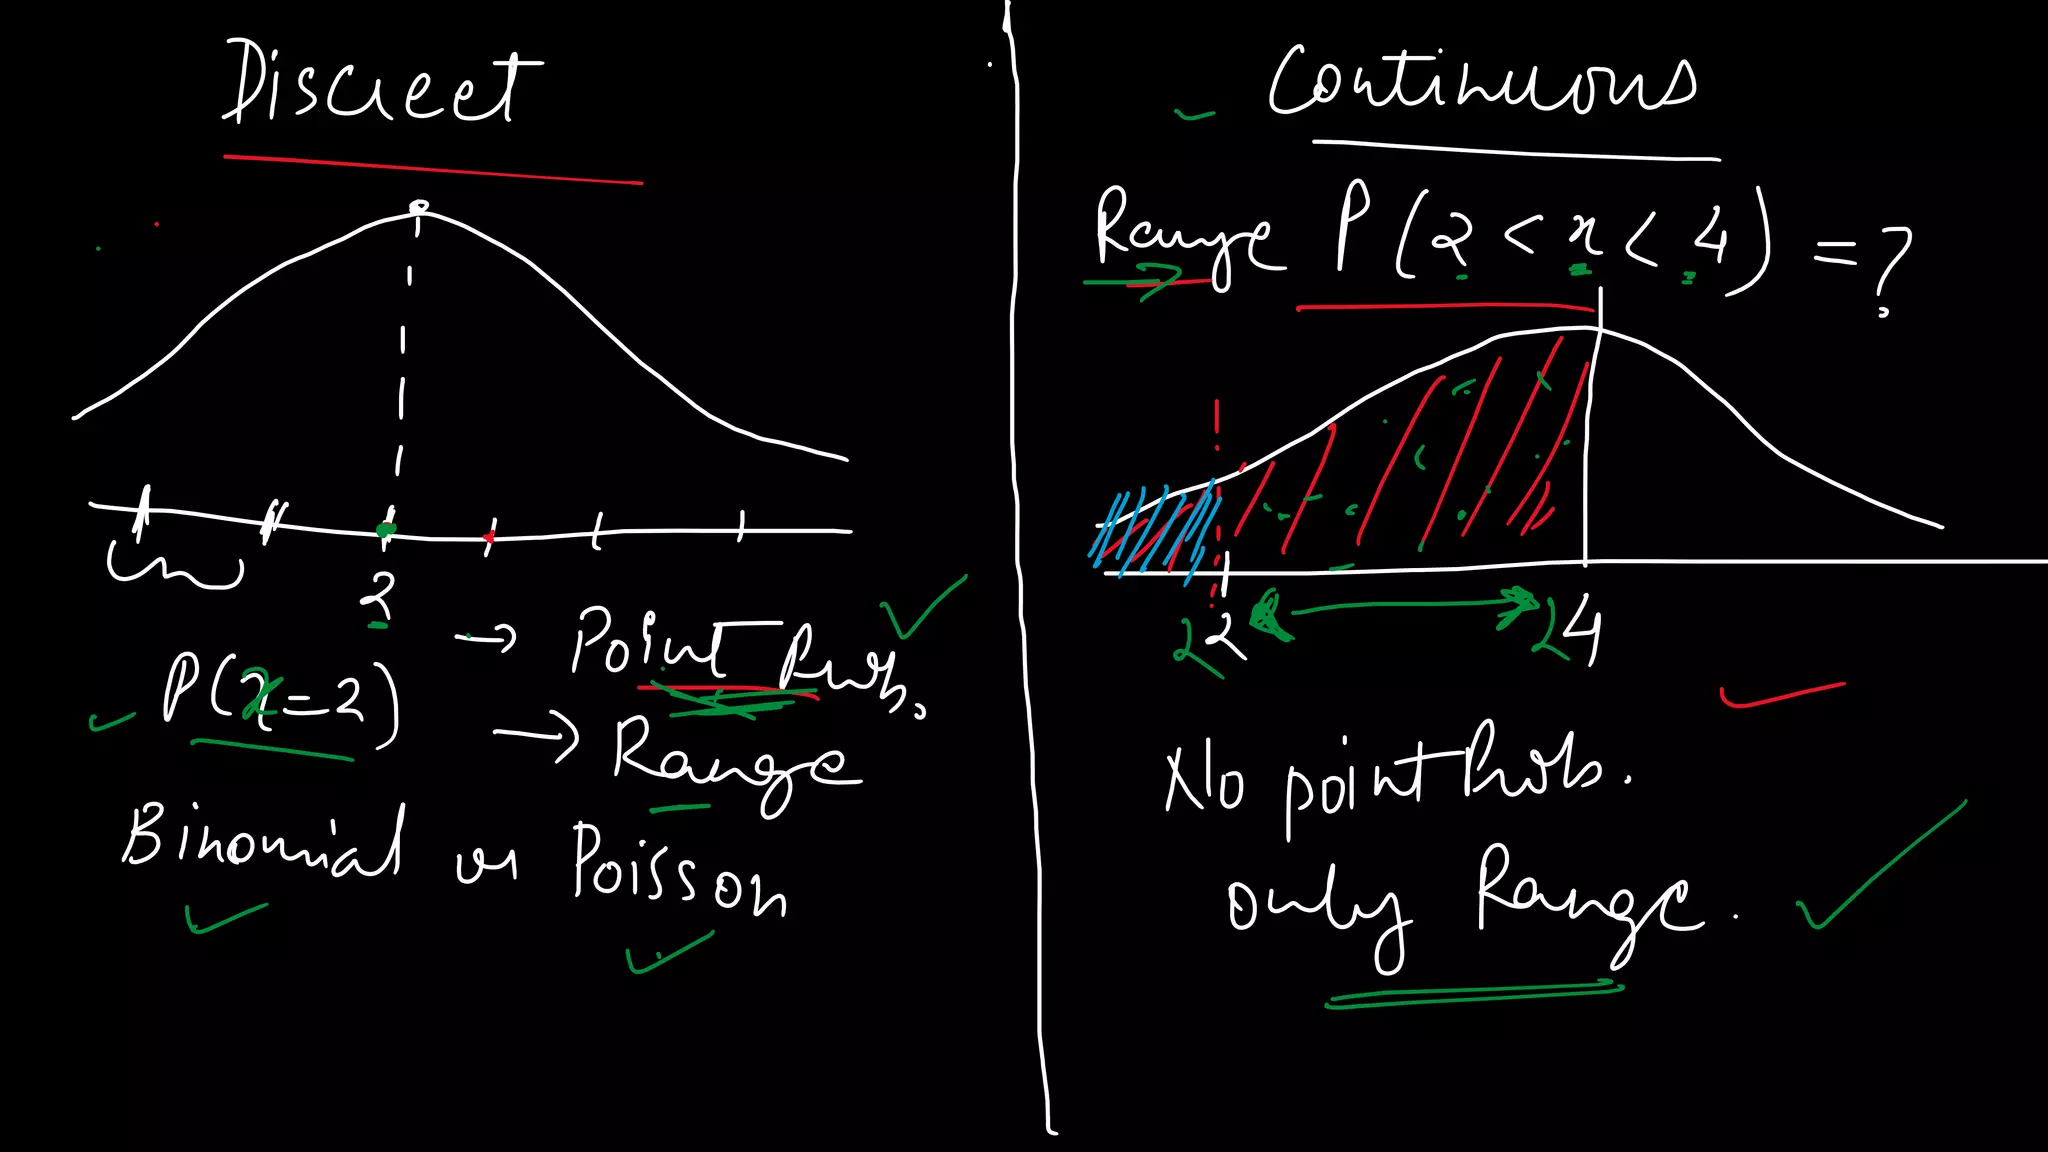 Discreet
2
→ Point Prob.
P(x=2)
→ Range
Binomial or Poisson
Continuous
Range P(2<x<4) = ?
2 2 2 4
No point Prob.
only Range.